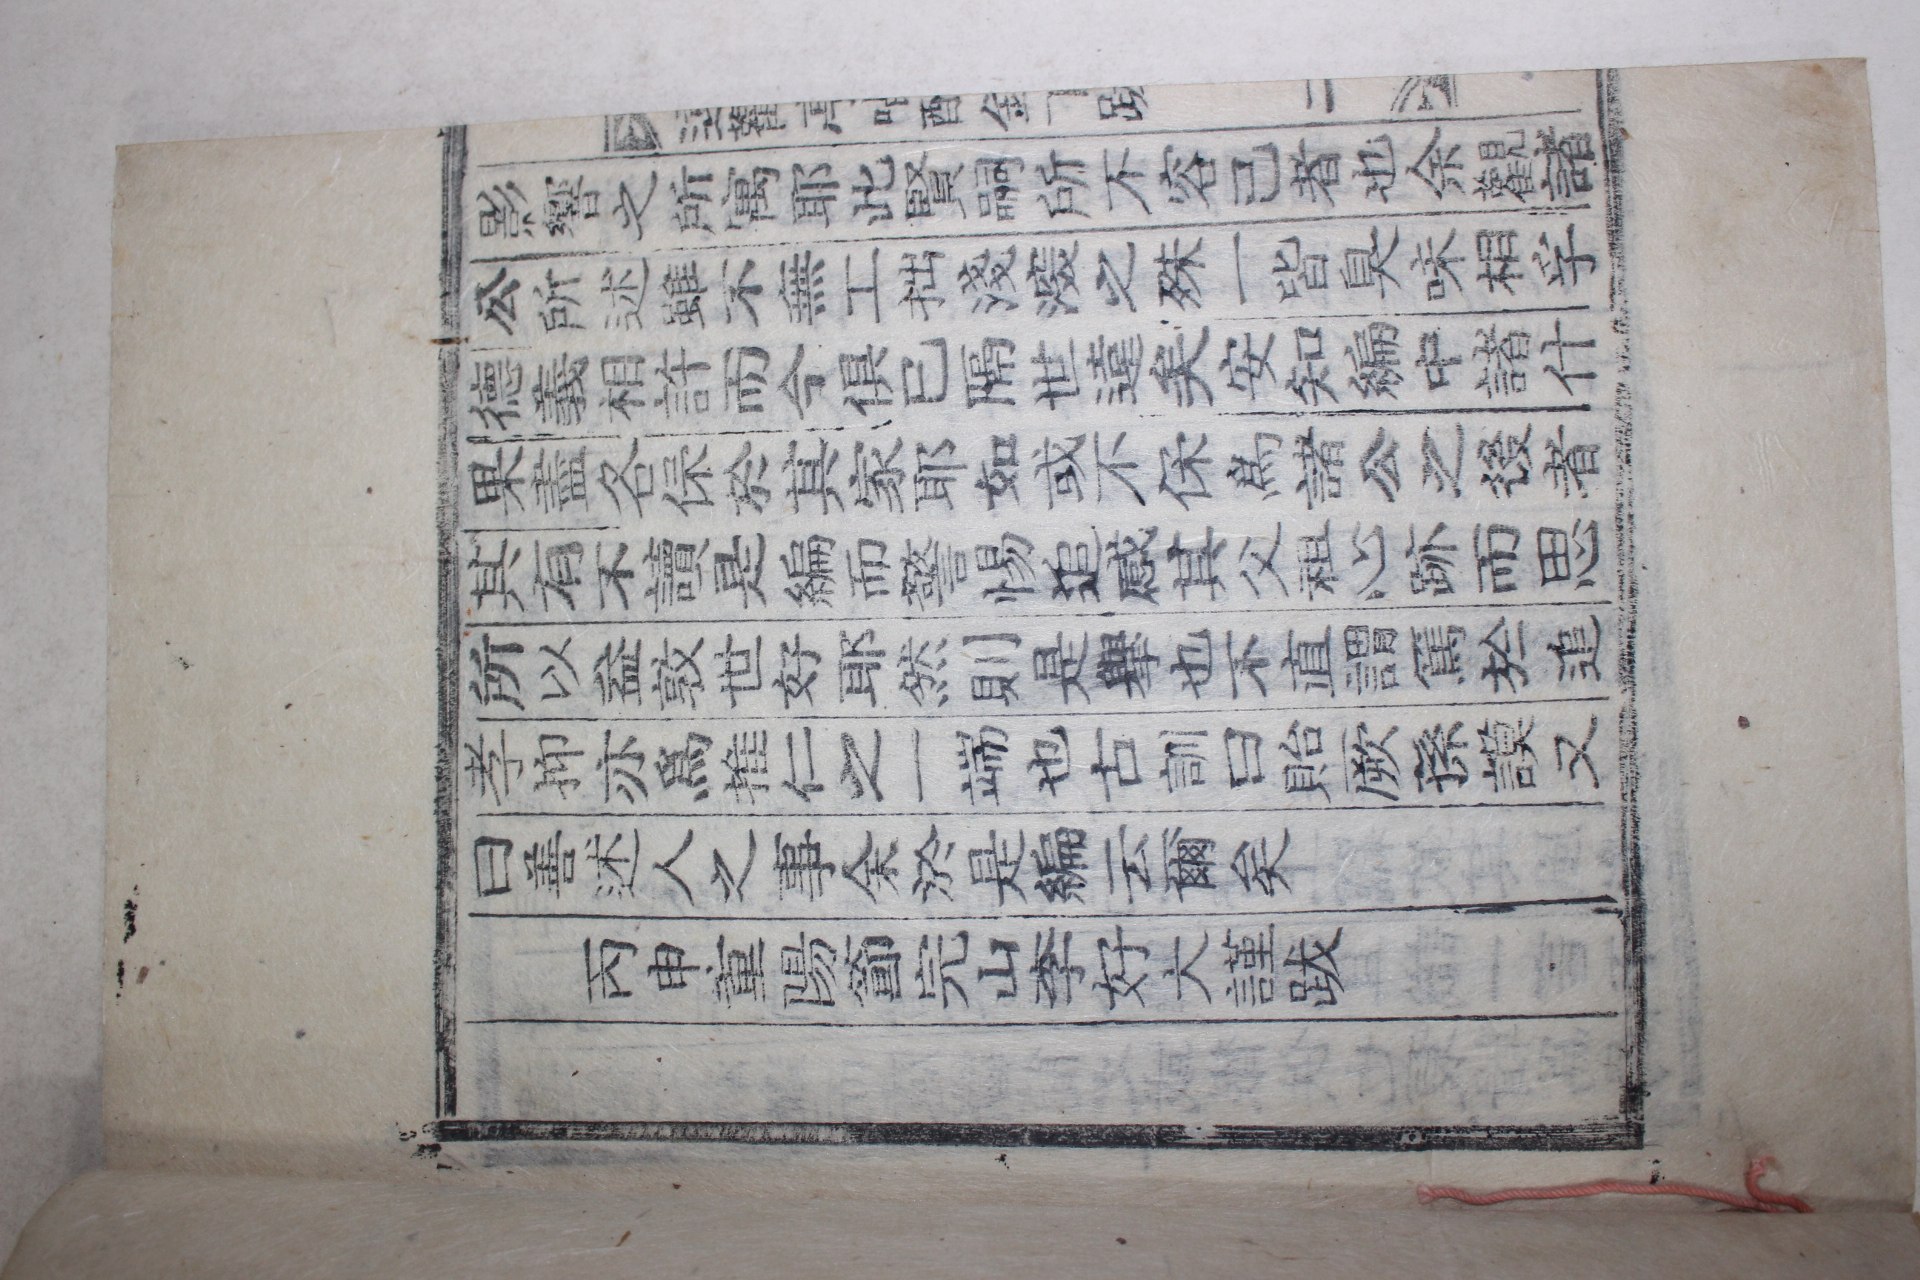 影響之所寓耶此賢嗣所不容已者也余觀諸
公所述雖不無工拙淺深之殊一皆臭味相孚
德義相許而今俱已隔世遠矣安知編中諸什
果盡各保於其家耶如或不保爲諸公之後者
其有不讀是編而警惕追感其父祖心跡而思
所以益敦世好耶然則是擧也不直謂篤於追
孝抑亦爲推仁之一端也古訓曰貽厥孫謨又
曰善述人之事余於是編云爾矣
丙申重陽節完山李好大謹跋